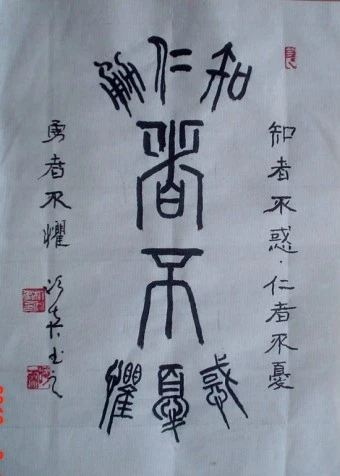 知者不惑·仁者不憂
知仁勇
者
不
惑憂懼
勇者不懼